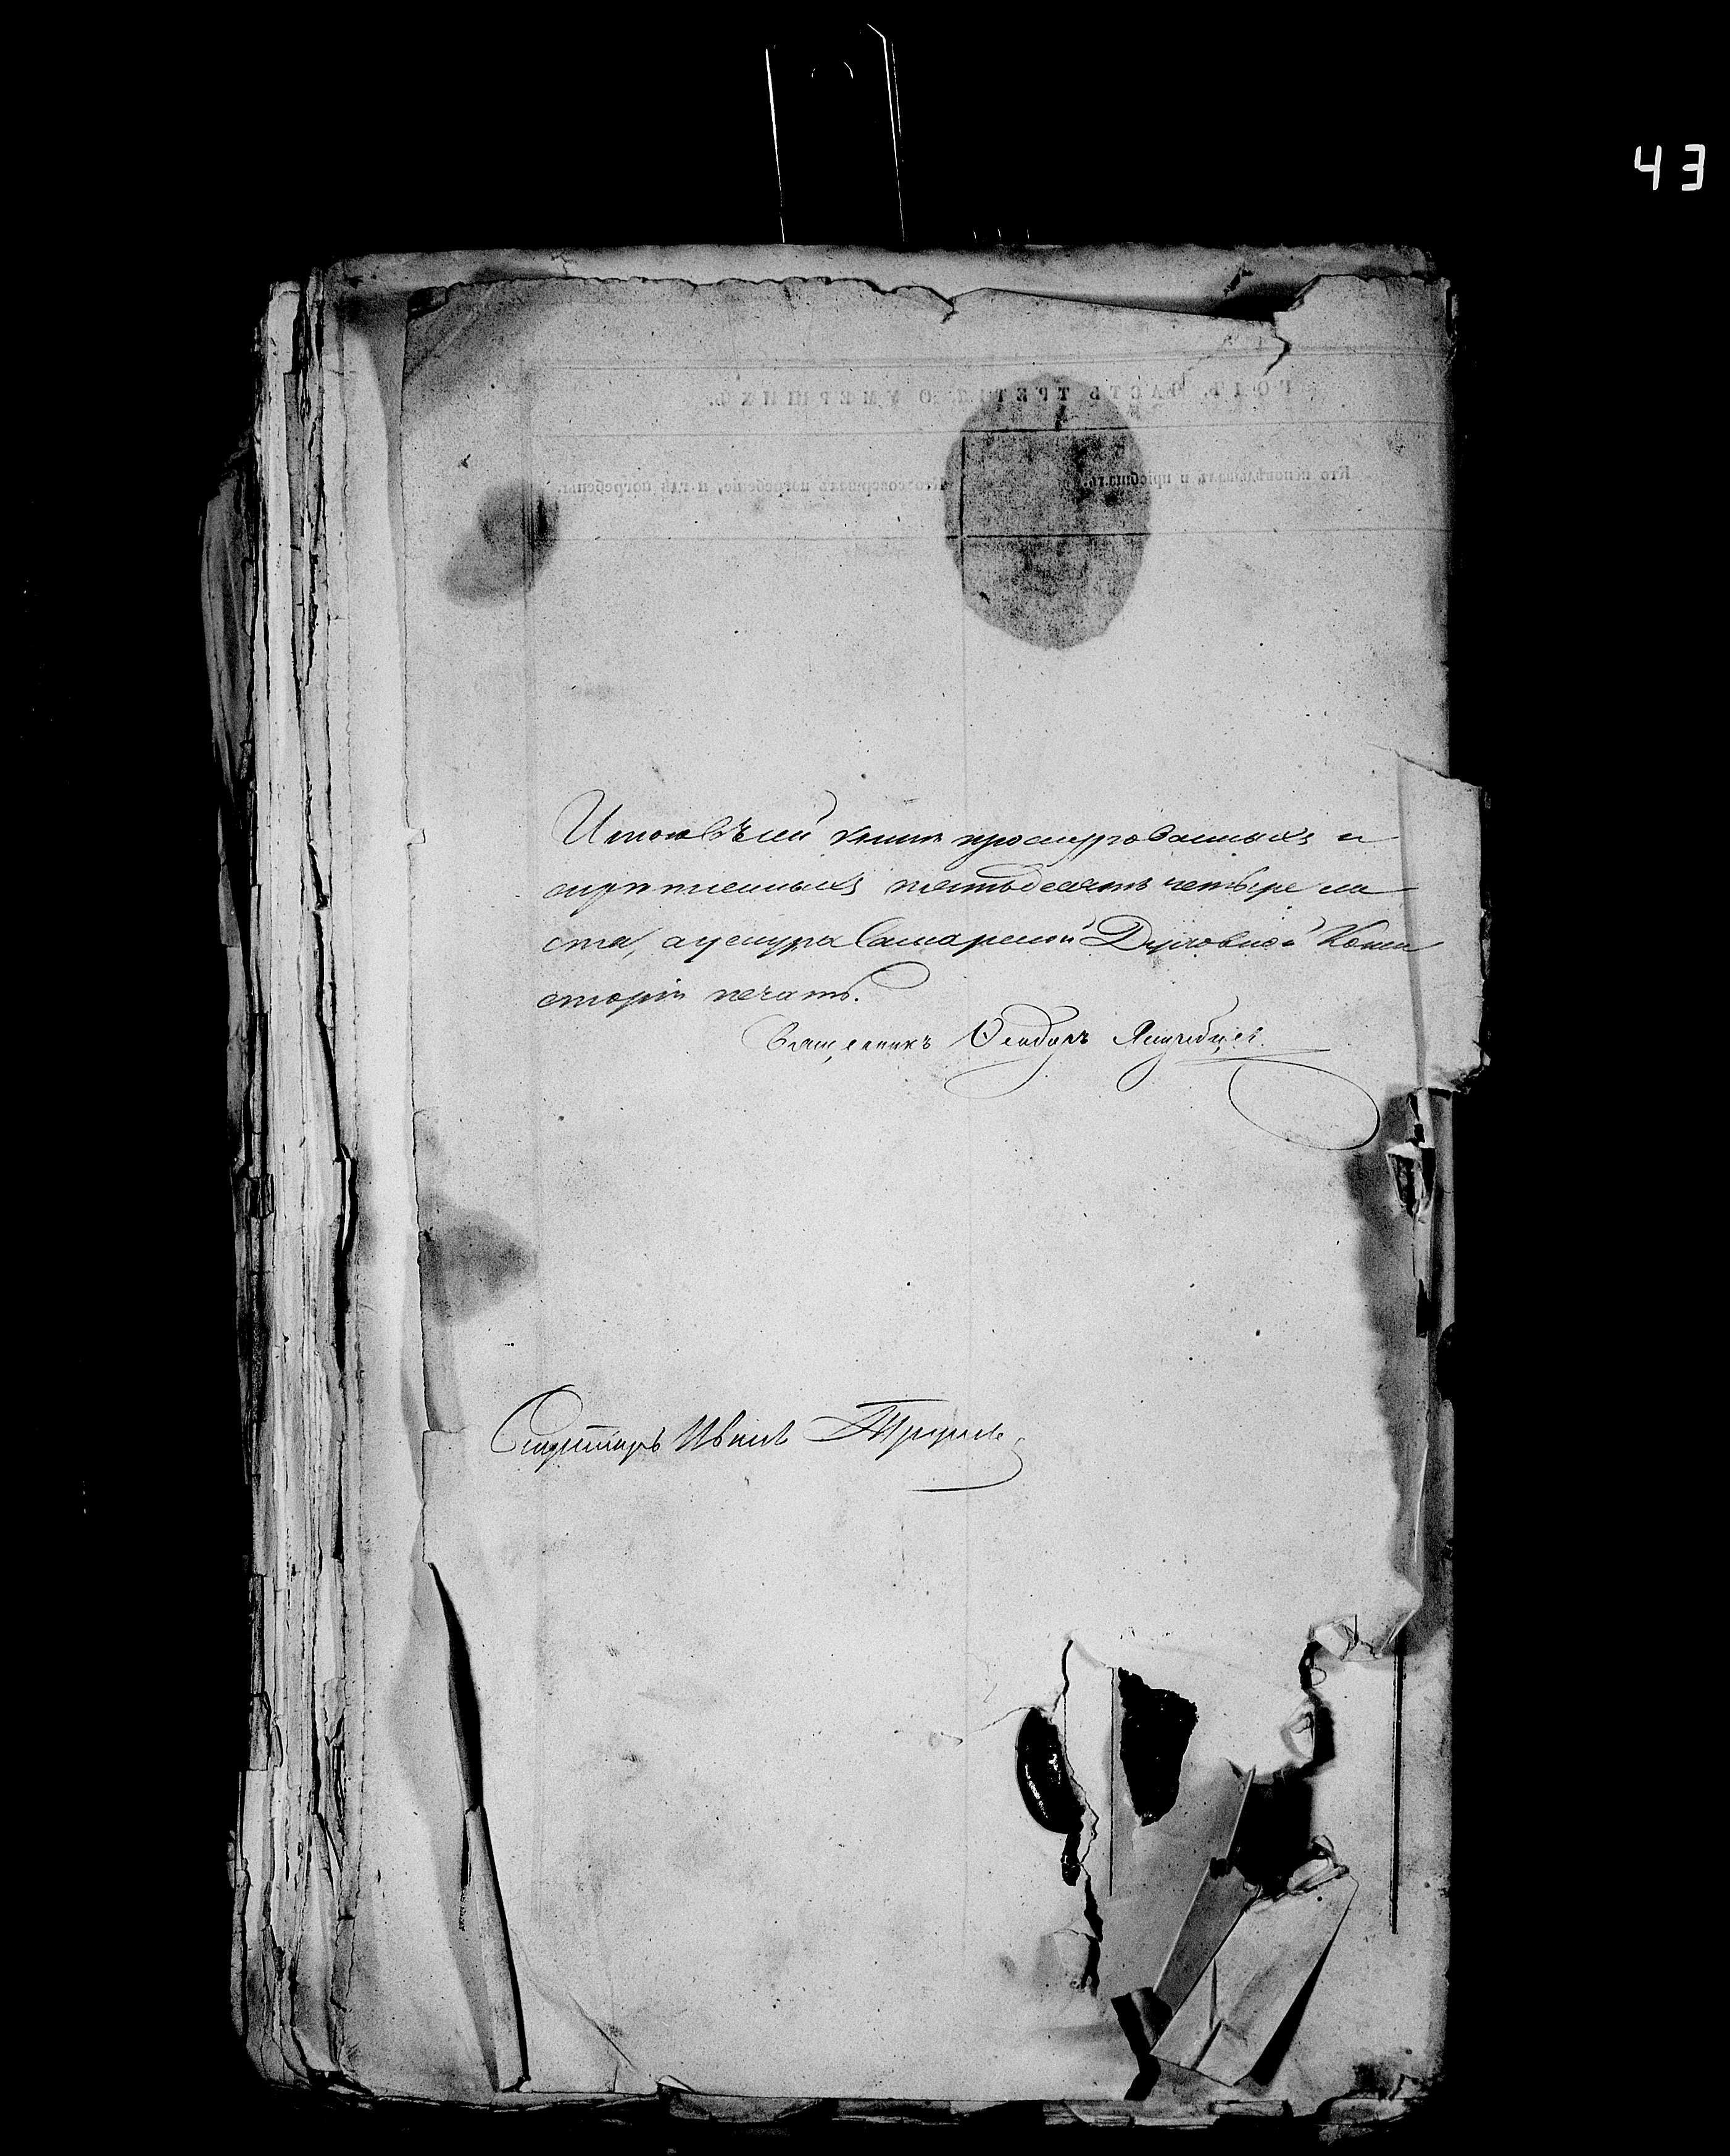 43
Итого въ сей книгѣ прошнурованныхъ и
скрѣпленныхъ пятьдесятъ четыре ли
ста, а у шнура Самарской Духовной Конси
сторіи печать.
Священникъ Ѳеодоръ
Секретарь Иванъ